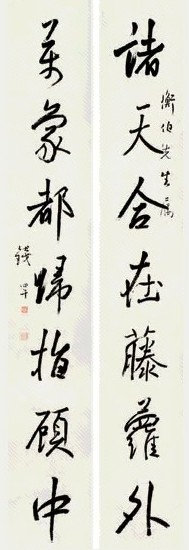 諸天合在藤蘿外
衡伯先生屬
萬象都歸指顧中
錢